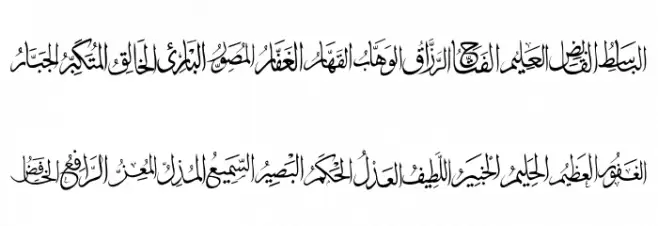 الباسط القابض العليم الفتاح الرزاق الوهاب القهار الغفار المصور البارئ الخالق المتكبر الجبار
الغفور العظيم الحليم الخبير اللطيف العدل الحكم البصير السميع المذل المعز الرافع الخافض